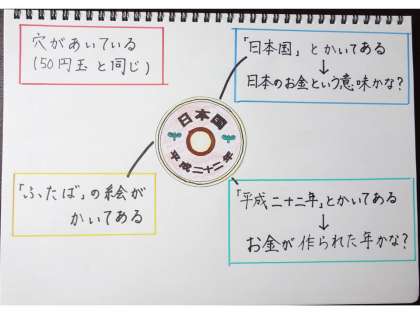 穴があいている
(50円玉と同じ)
「日本国」とかいてある
↓
日本のお金という意味かな?
日本国
平成二十二年
「ふたば」の絵が
かいてある
「平成二十二年」とかいてある
↓
お金が作られた年かな?